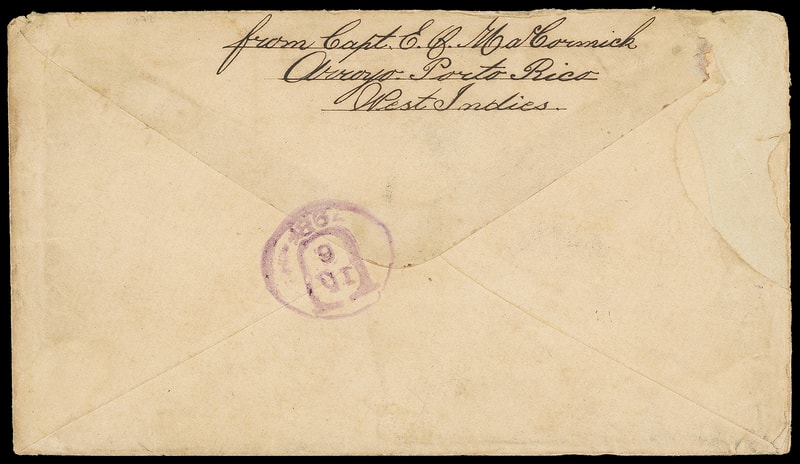 from Capt. E. Q. MacCormick
Arroyo. Porto Rico
West Indies.
6